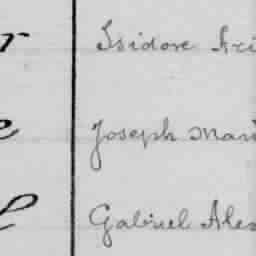 r Isidore Ari
e Joseph Mari
Gabriel Alex